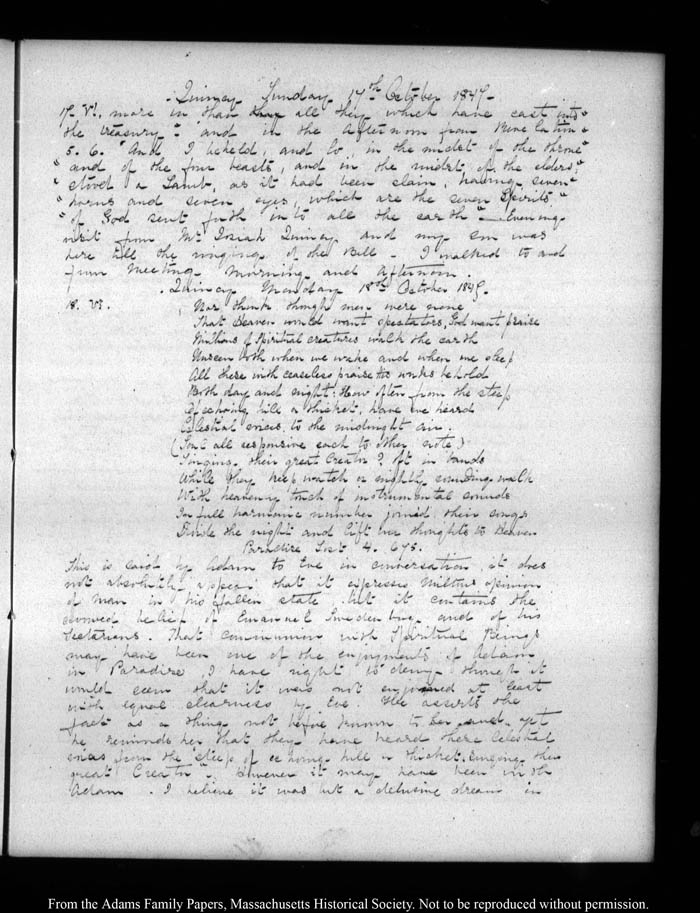 Quincy Sunday 17th October 1847.
17. VI. more in than they all they which have cast into"
the treasury" - and in the Afternoon from
5. 6. "And I beheld, and lo, in the midst of the throne"
"and of the four beasts, and in the midst of the elders,"
"stood a Lamb, as it had been slain, having seven"
"horns and seven eyes, which are the seven Spirits"
"of God sent forth into all the earth" - Evening
visit from Mr Josiah Quincy and my Son was
here till the ringing of the Bell - I walked to and
from Meeting Morning and Afternoon.
Quincy Monday 18th October 1847.
18. VI. Nor think though men were none
That Heaven would want spectators, God want praise
Millions of Spiritual creatures walk the earth
Unseen both when we wake and when we sleep
All these with ceaseless praise his works behold
Both day and night: How often from the steep
Of echoing hill or thicket, have we heard
Celestial voices, to the midnight air.
(Sole all responsive each to other note)
Singing their great Creator? Oft in bands
While they keep watch or nightly rounding walk
With heavenly touch of instrumental sounds
In full harmonic number joined, their songs
Divide the night and lift our thoughts to Heaven
Paradise Lost 4. 675.
This is said by Adam to Eve in conversation, it does
not absolutely appear that it expresses Milton's opinion
of man in his fallen state but it contains the
avowed belief of Emanuel Swedenborg and of his
Sectarians. That communion with Spiritual Beings
may have been one of the enjoyments of Adam
in Paradise I have right to deny though it
would seem that it was not enjoyed at least
with equal clearness by Eve. He asserts the
fact as a thing not before known to her and yet
he reminds her that they have heard these Celestial
voices from the steep of echoing hill or thicket, singing their
great Creator". However it may have been with
Adam. I believe it was but a delusive dream in
From the Adams Family Papers, Massachusetts Historical Society. Not to be reproduced without permission.